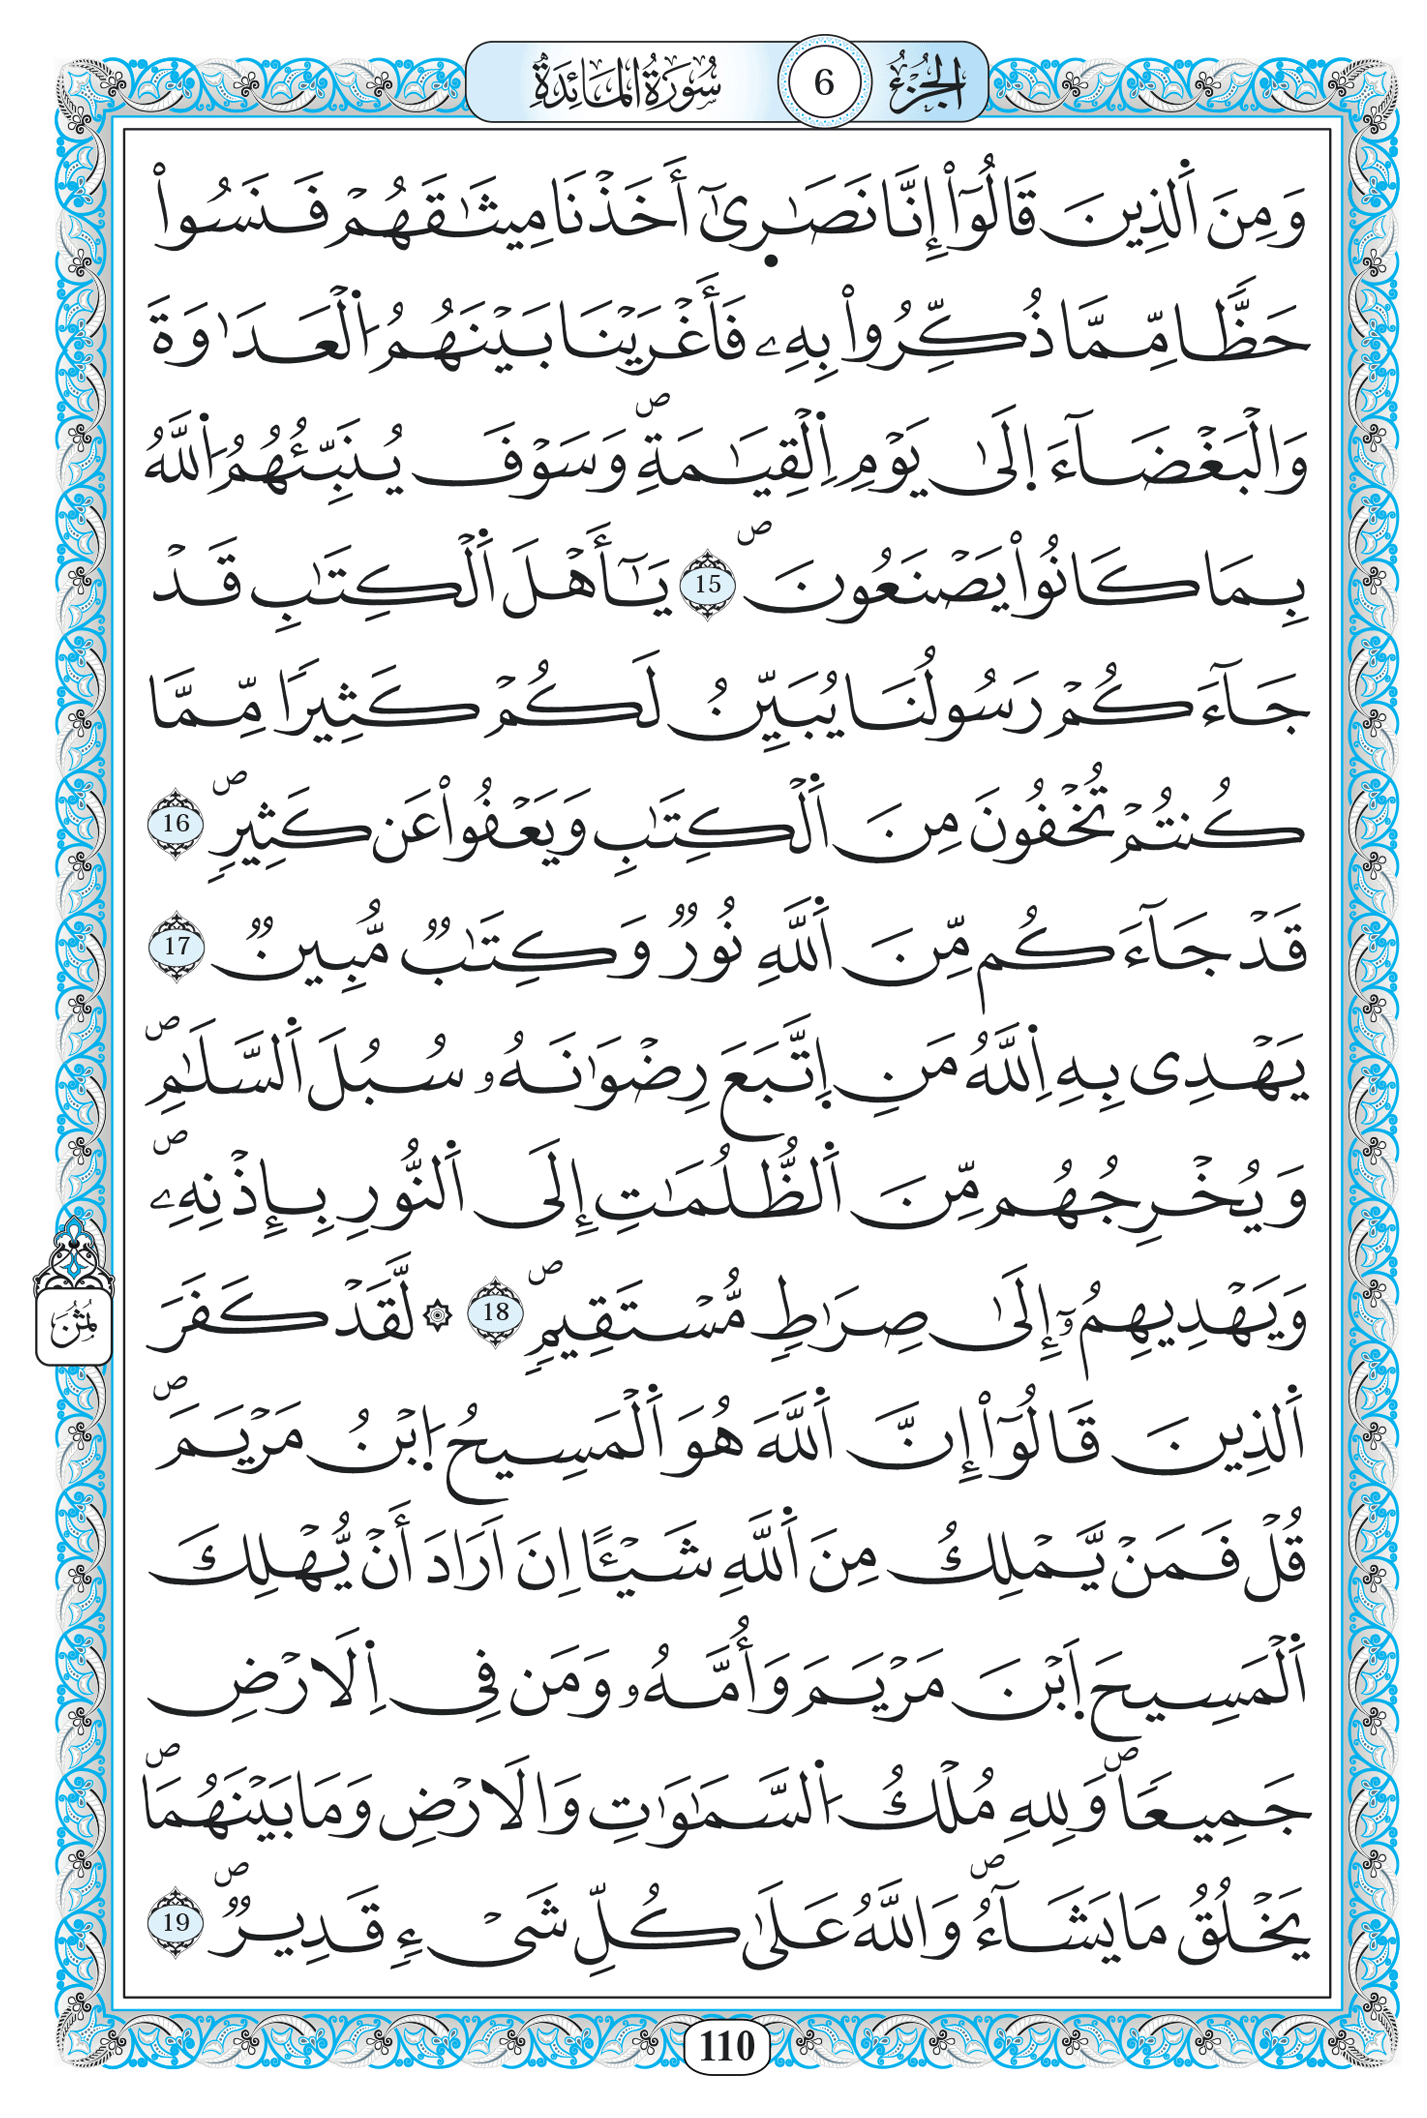 الجُزْءُ 6 سُورَةُ المَائِدَةِ
وَمِنَ اَ۬لذِينَ قَالُوٓاْ إِنَّا نَصَٰر۪ىٰٓ أَخَذْنَا مِيثَٰقَهُمْ فَنَسُواْ
حَظّاٗ مِّمَّا ذُكِّرُواْ بِهِۦ فَأَغْرَيْنَا بَيْنَهُمُ اُ۬لْعَدَٰوَةَ
وَالْبَغْضَآءَ ا۪لَىٰ يَوْمِ اِ۬لْقِيَٰمَةِۖ وَسَوْفَ يُنَبِّئُهُمُ اُ۬للَّهُ
بِمَا كَانُواْ يَصْنَعُونَۖ 15 يَٰٓأَهْلَ اَ۬لْكِتَٰبِ قَدْ
جَآءَكُمْ رَسُولُنَا يُبَيِّنُ لَكُمْ كَثِيراٗ مِّمَّا
كُنتُمْ تُخْفُونَ مِنَ اَ۬لْكِتَٰبِ وَيَعْفُواْ عَن كَثِيرٖۖ 16
قَدْ جَآءَكُم مِّنَ اَ۬للَّهِ نُورٞ وَكِتَٰبٞ مُّبِينٞ 17
يَهْدِى بِهِ اِ۬للَّهُ مَنِ اِ۪تَّبَعَ رِضْوَٰنَهُۥ سُبُلَ اَ۬لسَّلَٰمِۖ
وَيُخْرِجُهُم مِّنَ اَ۬لظُّلُمَٰتِ إِلَى اَ۬لنُّورِ بِإِذْنِهِۦۖ
وَيَهْدِيهِمُۥٓ إِلَىٰ صِرَٰطٖ مُّسْتَقِيمٖۖ 18 ۞ لَّقَدْ كَفَرَ
اَ۬لذِينَ قَالُوٓاْ إِنَّ اَ۬للَّهَ هُوَ اَ۬لْمَسِيحُ اُ۪بْنُ مَرْيَمَۖ
قُلْ فَمَنْ يَّمْلِكُ مِنَ اَ۬للَّهِ شَيْـٔاً اِنَ اَرَادَ أَنْ يُّهْلِكَ
اَ۬لْمَسِيحَ اَ۪بْنَ مَرْيَمَ وَأُمَّهُۥ وَمَن فِى اِ۬لَارْضِ
جَمِيعاٗۖ وَلِلهِ مُلْكُ اُ۬لسَّمَٰوَٰتِ وَالَارْضِ وَمَا بَيْنَهُمَاۖ
يَخْلُقُ مَا يَشَآءُۖ وَاللَّهُ عَلَىٰ كُلِّ شَىْءٖ قَدِيرٞۖ 19
ثُمُن
110